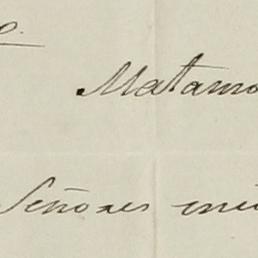 Matamo
Señores mi